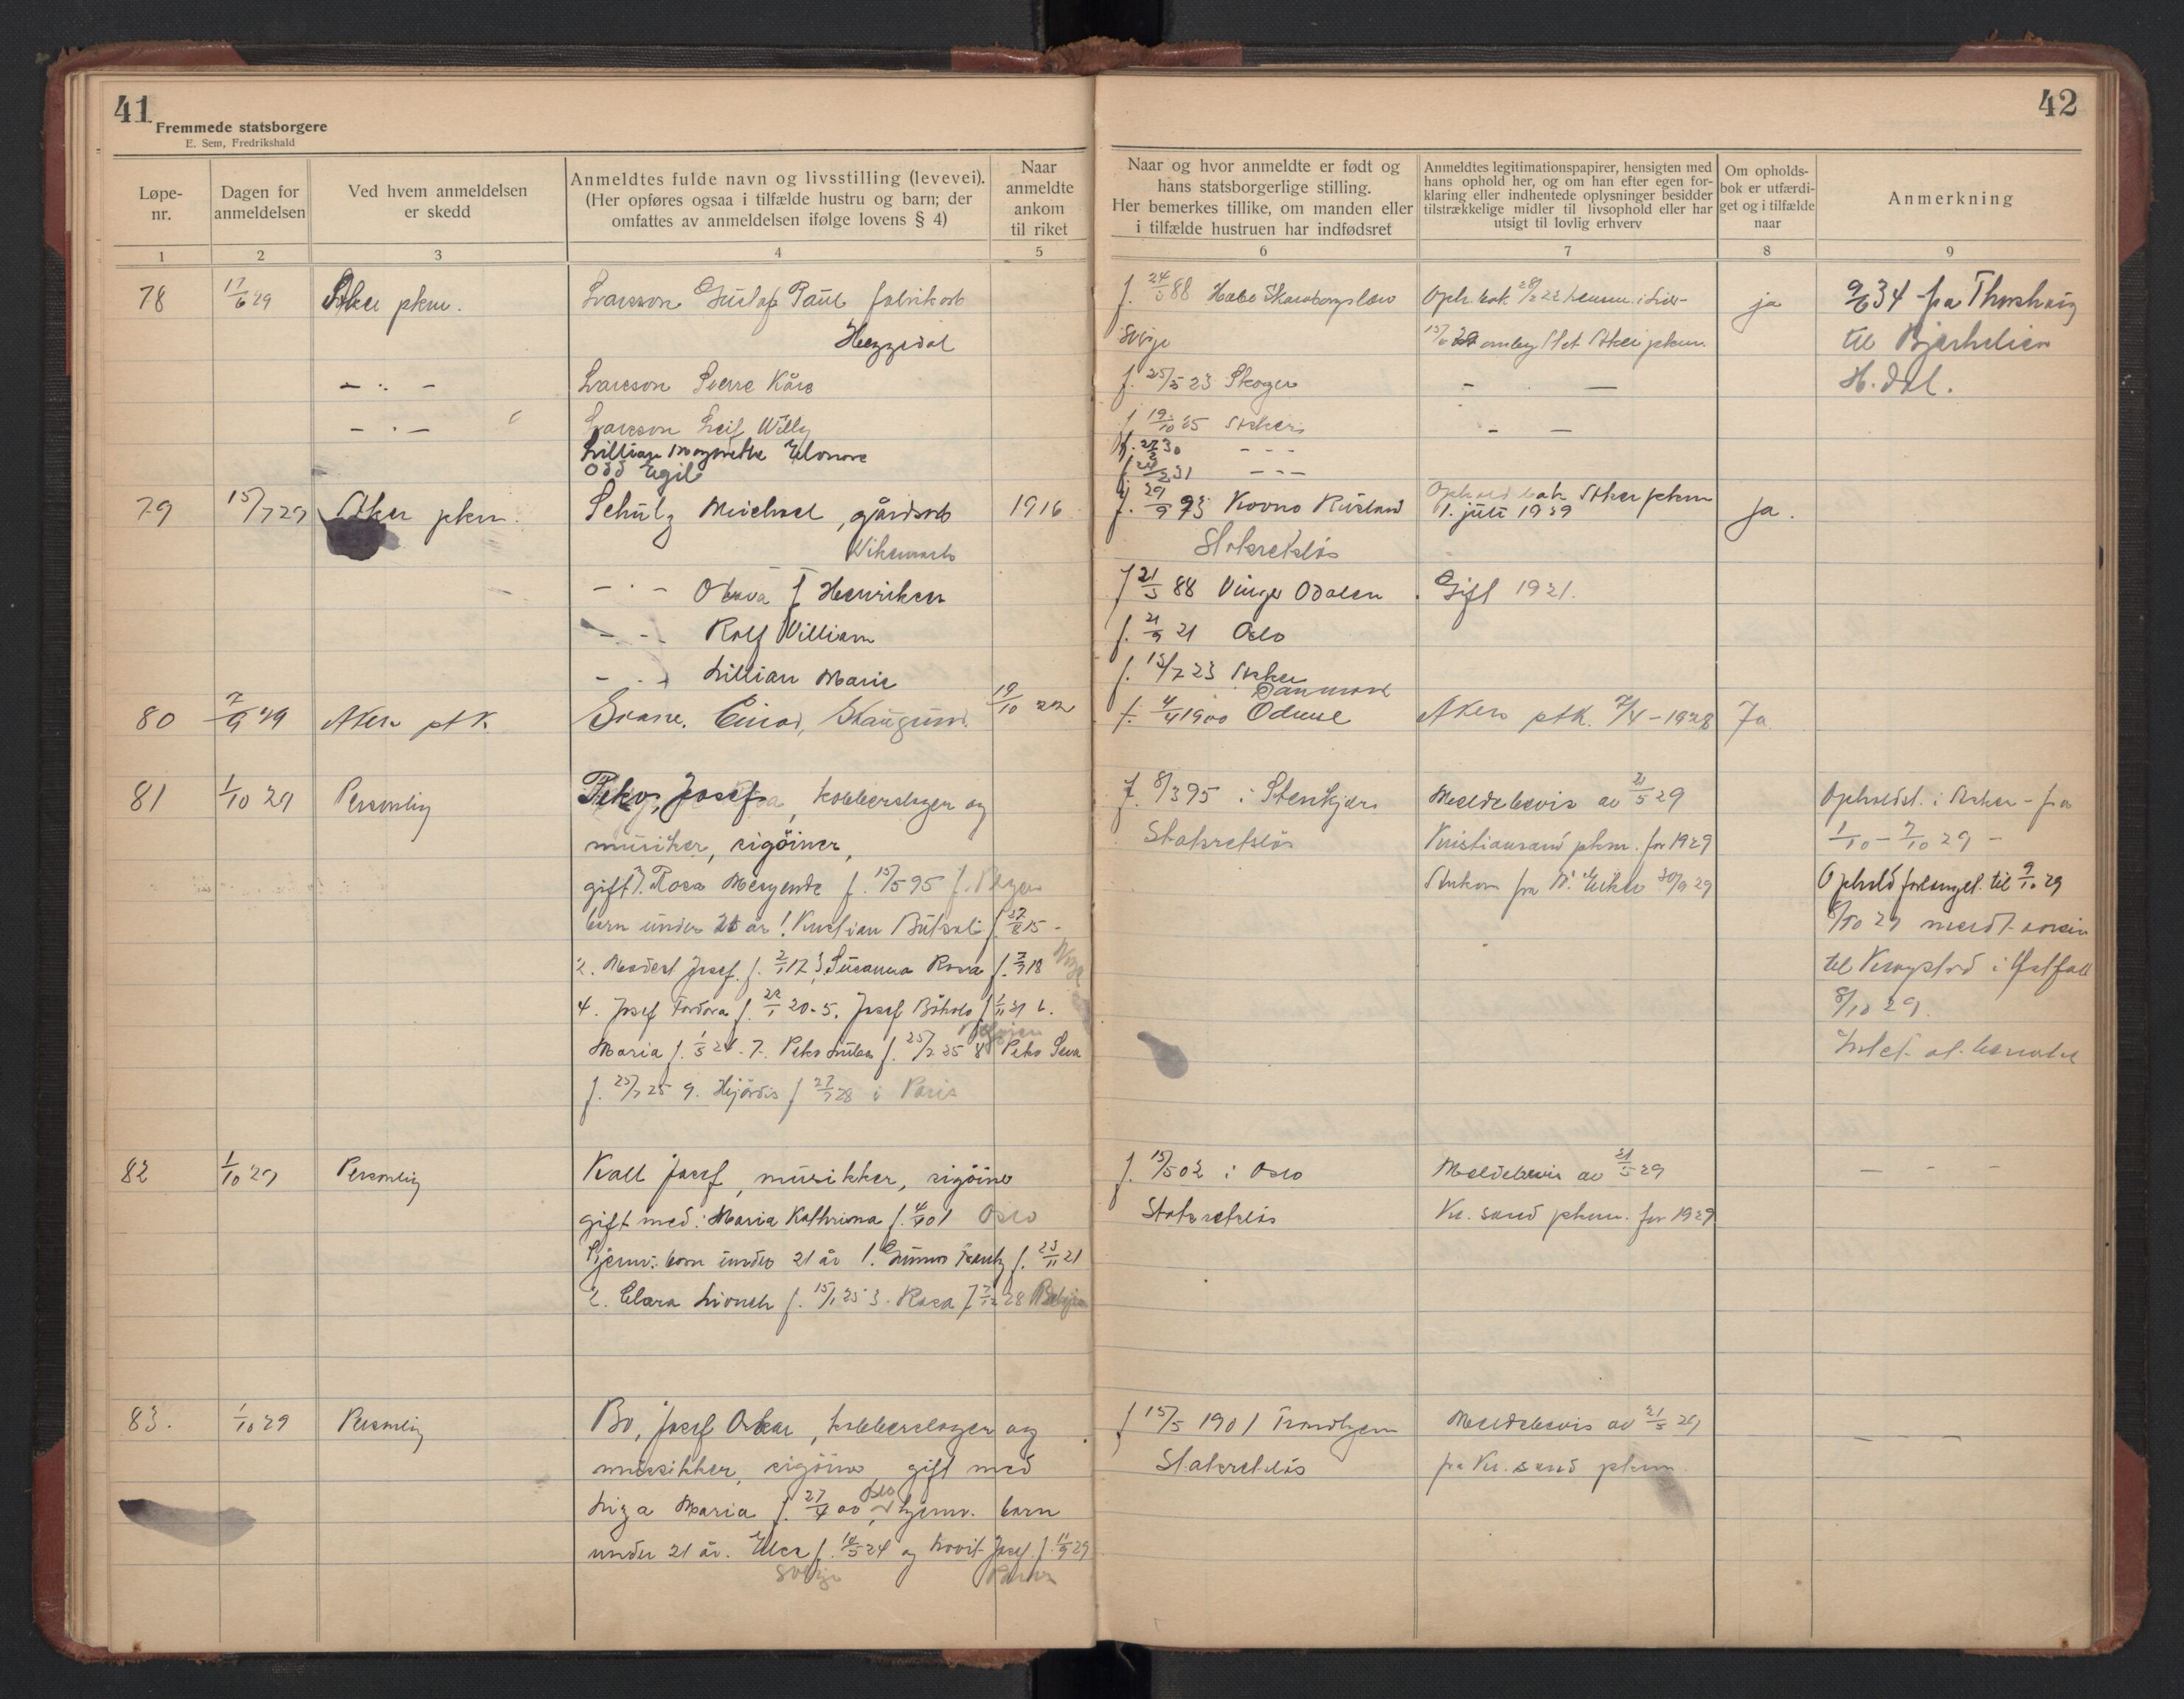 41
Fremmede statsborgere
E. Sem, Fredrikshald
Løpe-
nr.
Dagen for
anmeldelsen
Ved hvem anmeldelsen
er skedd
Anmeldtes fulde navn og livsstilling (levevei).
(Her opføres ogsaa i tilfælde hustru og barn; der
omfattes av anmeldelsen ifølge lovens § 4)
Naar
anmeldte
ankom
til riket
1 2 3 4 5
78 17/6 29 Asker pkm. Larsson Gustaf Paul fabrikarb
Heggedal
— " — Larsson Sverre Kåre
— " — Larsson Leif Willy
Lillian Margrethe Elonore
Odd Egil
79 15/7 29 Asker pkm. Schulz Michael, gårdsarb 1916
— " — f Henriksen
— " — Rolf William
— " — Lillian Marie
80 7/9 29 Akers ptk. Svane, Einar, Skaugum. 19/10 22
81 1/10 29 Personlig Peko, Josef, kobberslager og
musiker, sigöiner,
gift. Rosa f. 15/5 95
barn under 21 år 1. Kristian f. 27/8 15 -
2. Josef f. 2/1 17 3 Susanna Rosa f. 7/7 18
4. Josef f. 22/1 20 - 5. Josef f. 6.
Maria f. 1/5 24 - 7. Peko f. 25/7 25 8 Peko
f. 25/7 25 9. Hjördis f 27/7 28 i Paris
82 1/10 29 Personlig Kall Josef, musikker, sigöiner
gift med: Maria Kathrina f. 4/4 01 Oslo
hjemv: barn under 21 år 1. f. 23/11 21
2. Clara f. 15/1 25 3. Rosa f 7/12 28 Belgien
83. 1/10 29 Personlig Bo, Josef Oskar, kobberslager og
mussikker, sigöiner, gift med
Liza Maria f. 27/4 00 Oslo, hjemv. barn
under 21 år. Elea f. 10/5 24 og Josef. f. 11/9 29
Sverige
42
Naar og hvor anmeldte er født og
hans statsborgerlige stilling.
Her bemerkes tillike, om manden eller
i tilfælde hustruen har indfødsret
Anmeldtes legitimationspapirer, hensigten med
hans ophold her, og om han efter egen for-
klaring eller indhentede oplysninger besidder
tilstrækkelige midler til livsophold eller har
utsigt til lovlig erhverv
Om opholds-
bok er utfærdi-
get og i tilfælde
naar
Anmerkning
6 7 8 9
f. 24/5 88 Habo Skaraborgslän Oph. bok ja 9/6 34 fra
Sverige Asker pkm. til Bjerkelien
f. 25/5 23 Skoger — — H.dal.
f 19/10 25 Asker — —
f. 27/2 30 - - -
f 24/2 31 - - -
f. 29/9 93 Kovno Rusland Opholdsbok Asker pkm ja.
1. juli 1929
Statsretslös
f 21/5 88 Vinger Odalen Gift 1921.
f. 21/9 21 Oslo
f. 13/7 23 Asker
Danmark
f. 4/4 1900 Odense Akers ptk. 7/4 - 1928 Ja
f. 8/3 95 i Stenkjær Meldebevis av 21/5 29 Opholdst. i Asker - fra
Statsretslös Kristiansand pkm. for 1929 1/10 - 7/10 29 -
Ankom fra Ö. Eiker 30/9 29 Ophold forlenget til 9/10 29
8/10 29 meldt
til Kragstad i Östfold
8/10 29.
Intet at bemerke
f. 15/5 02 i Oslo Meldebevis av 21/5 29 — - -
Statsretslös Kr. sand pkm. for 1929
f 15/5 1901 Trondhjem Meldebevis av 21/5 29 — — —
Statsretslös fra Kr. sand pkm.